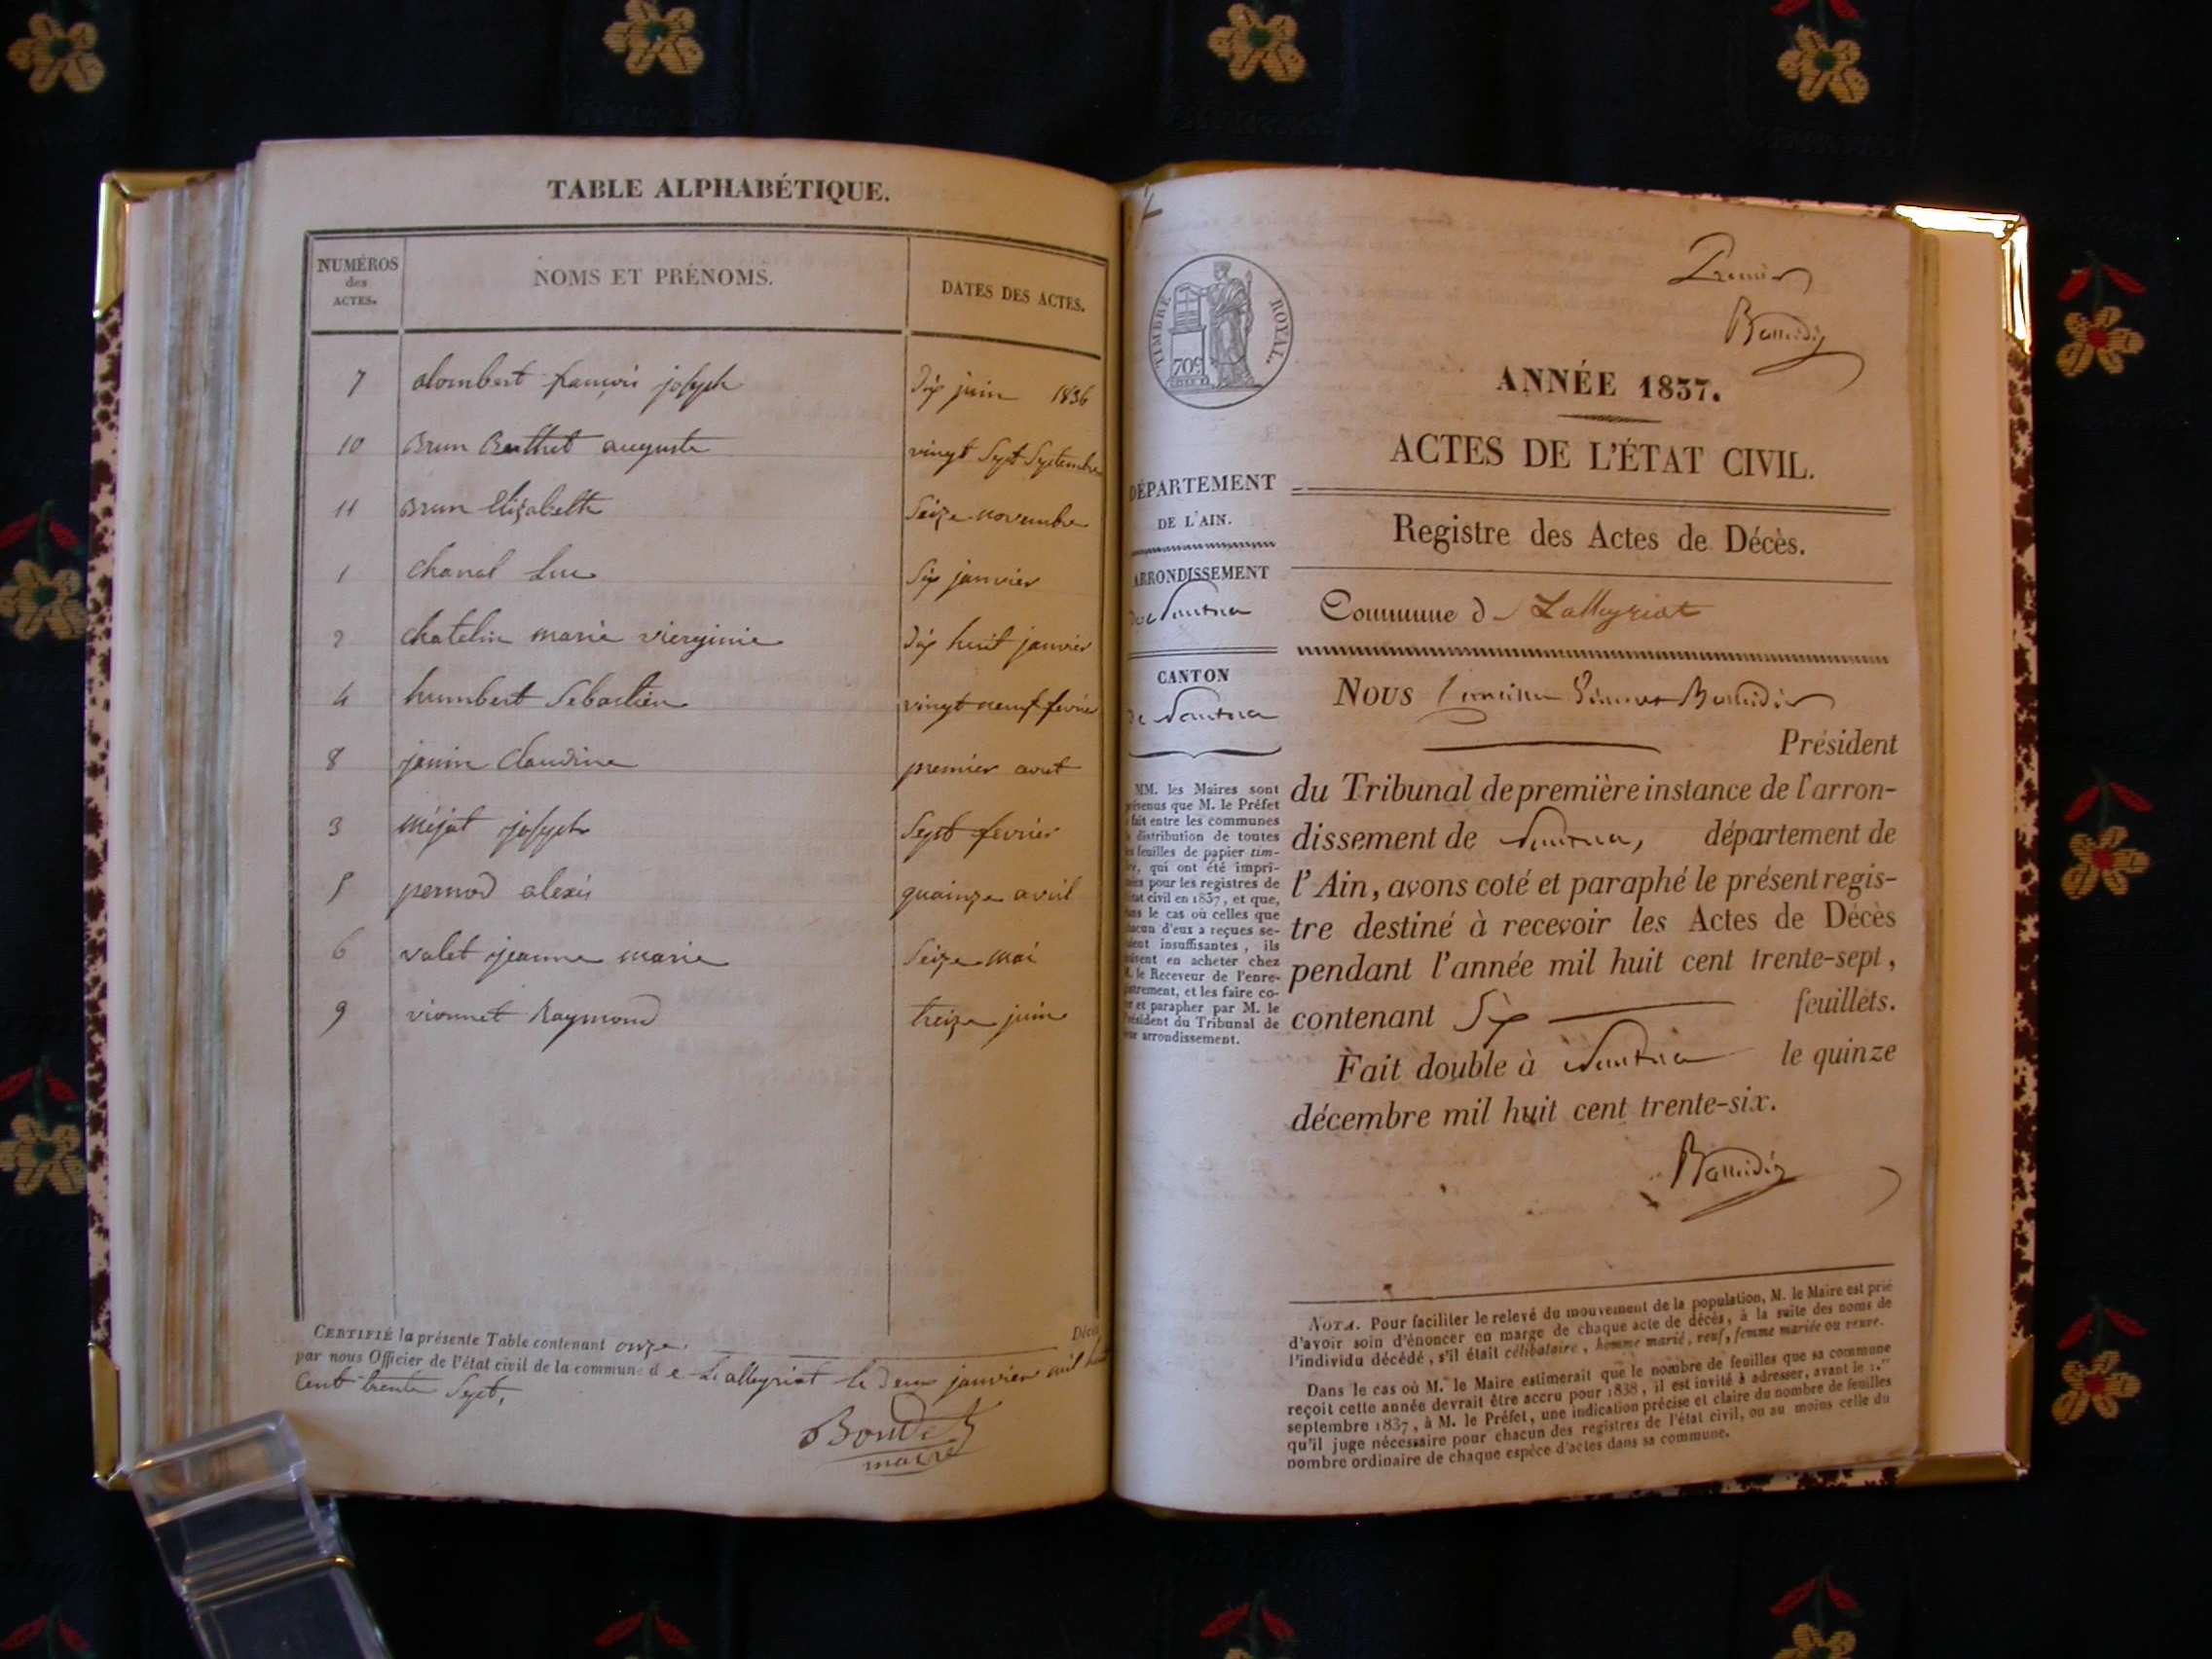 TABLE ALPHABÉTIQUE.
NUMÉROS
des
ACTES.
NOMS ET PRÉNOMS.
DATES DES ACTES.
7 alombert françois joseph dix juin 1836
10 Brun Berthet auguste vingt Sept Septembre
11 Brun Elizabeth Seize novembre
1 chanal Luc Six janvier
2 chatelin marie vierginie dix huit janvier
4 humbert Sebastien vingt neuf févrie
8 janin Claudine premier aout
3 méjat joseph Sept fevrier
5 pernod alexis quainze avril
6 valet jeanne marie Seize mai
9 vionnet Raymond treize juin
CERTIFIÉ la présente Table contenant onze Décè
par nous Officier de l'état civil de la commune de Lalleyriat le deux janvier mil huit
Cent trente Sept,
Boudet
maire
2
Premier
TIMBRE ROYAL.
70c
ANNÉE 1837.
ACTES DE L'ÉTAT CIVIL.
DÉPARTEMENT
DE L'AIN.
Registre des Actes de Décès.
ARRONDISSEMENT
de Nantua
Commune d Lalleyriat
CANTON
de Nantua
Nous
Président
du Tribunal de première instance de l'arron-
dissement de Nantua, département de
l'Ain, avons coté et paraphé le présent regis-
tre destiné à recevoir les Actes de Décès
pendant l'année mil huit cent trente-sept,
contenant Six feuillets.
Fait double à Nantua le quinze
décembre mil huit cent trente-six.
MM. les Maires sont
prévenus que M. le Préfet
fait entre les communes
distribution de toutes
feuilles de papier tim-
qui ont été impri-
pour les registres de
civil en 1837, et que,
le cas où celles que
d'eux a reçues se-
insuffisantes, ils
en acheter chez
le Receveur de l'enre-
et les faire co-
et parapher par M. le
Président du Tribunal de
arrondissement.
NOTA. Pour faciliter le relevé du mouvement de la population, M. le Maire est prié
d'avoir soin d'énoncer en marge de chaque acte de décès, à la suite des noms de
l'individu décédé, s'il était célibataire, homme marié, veuf, femme mariée ou veuve.
Dans le cas où M. le Maire estimerait que le nombre de feuilles que sa commune
reçoit cette année devrait être accru pour 1838, il est invité à adresser, avant le 1.er
septembre 1837, à M. le Préfet, une indication précise et claire du nombre de feuilles
qu'il juge nécessaire pour chacun des registres de l'état civil, ou au moins celle du
nombre ordinaire de chaque espèce d'actes dans sa commune.